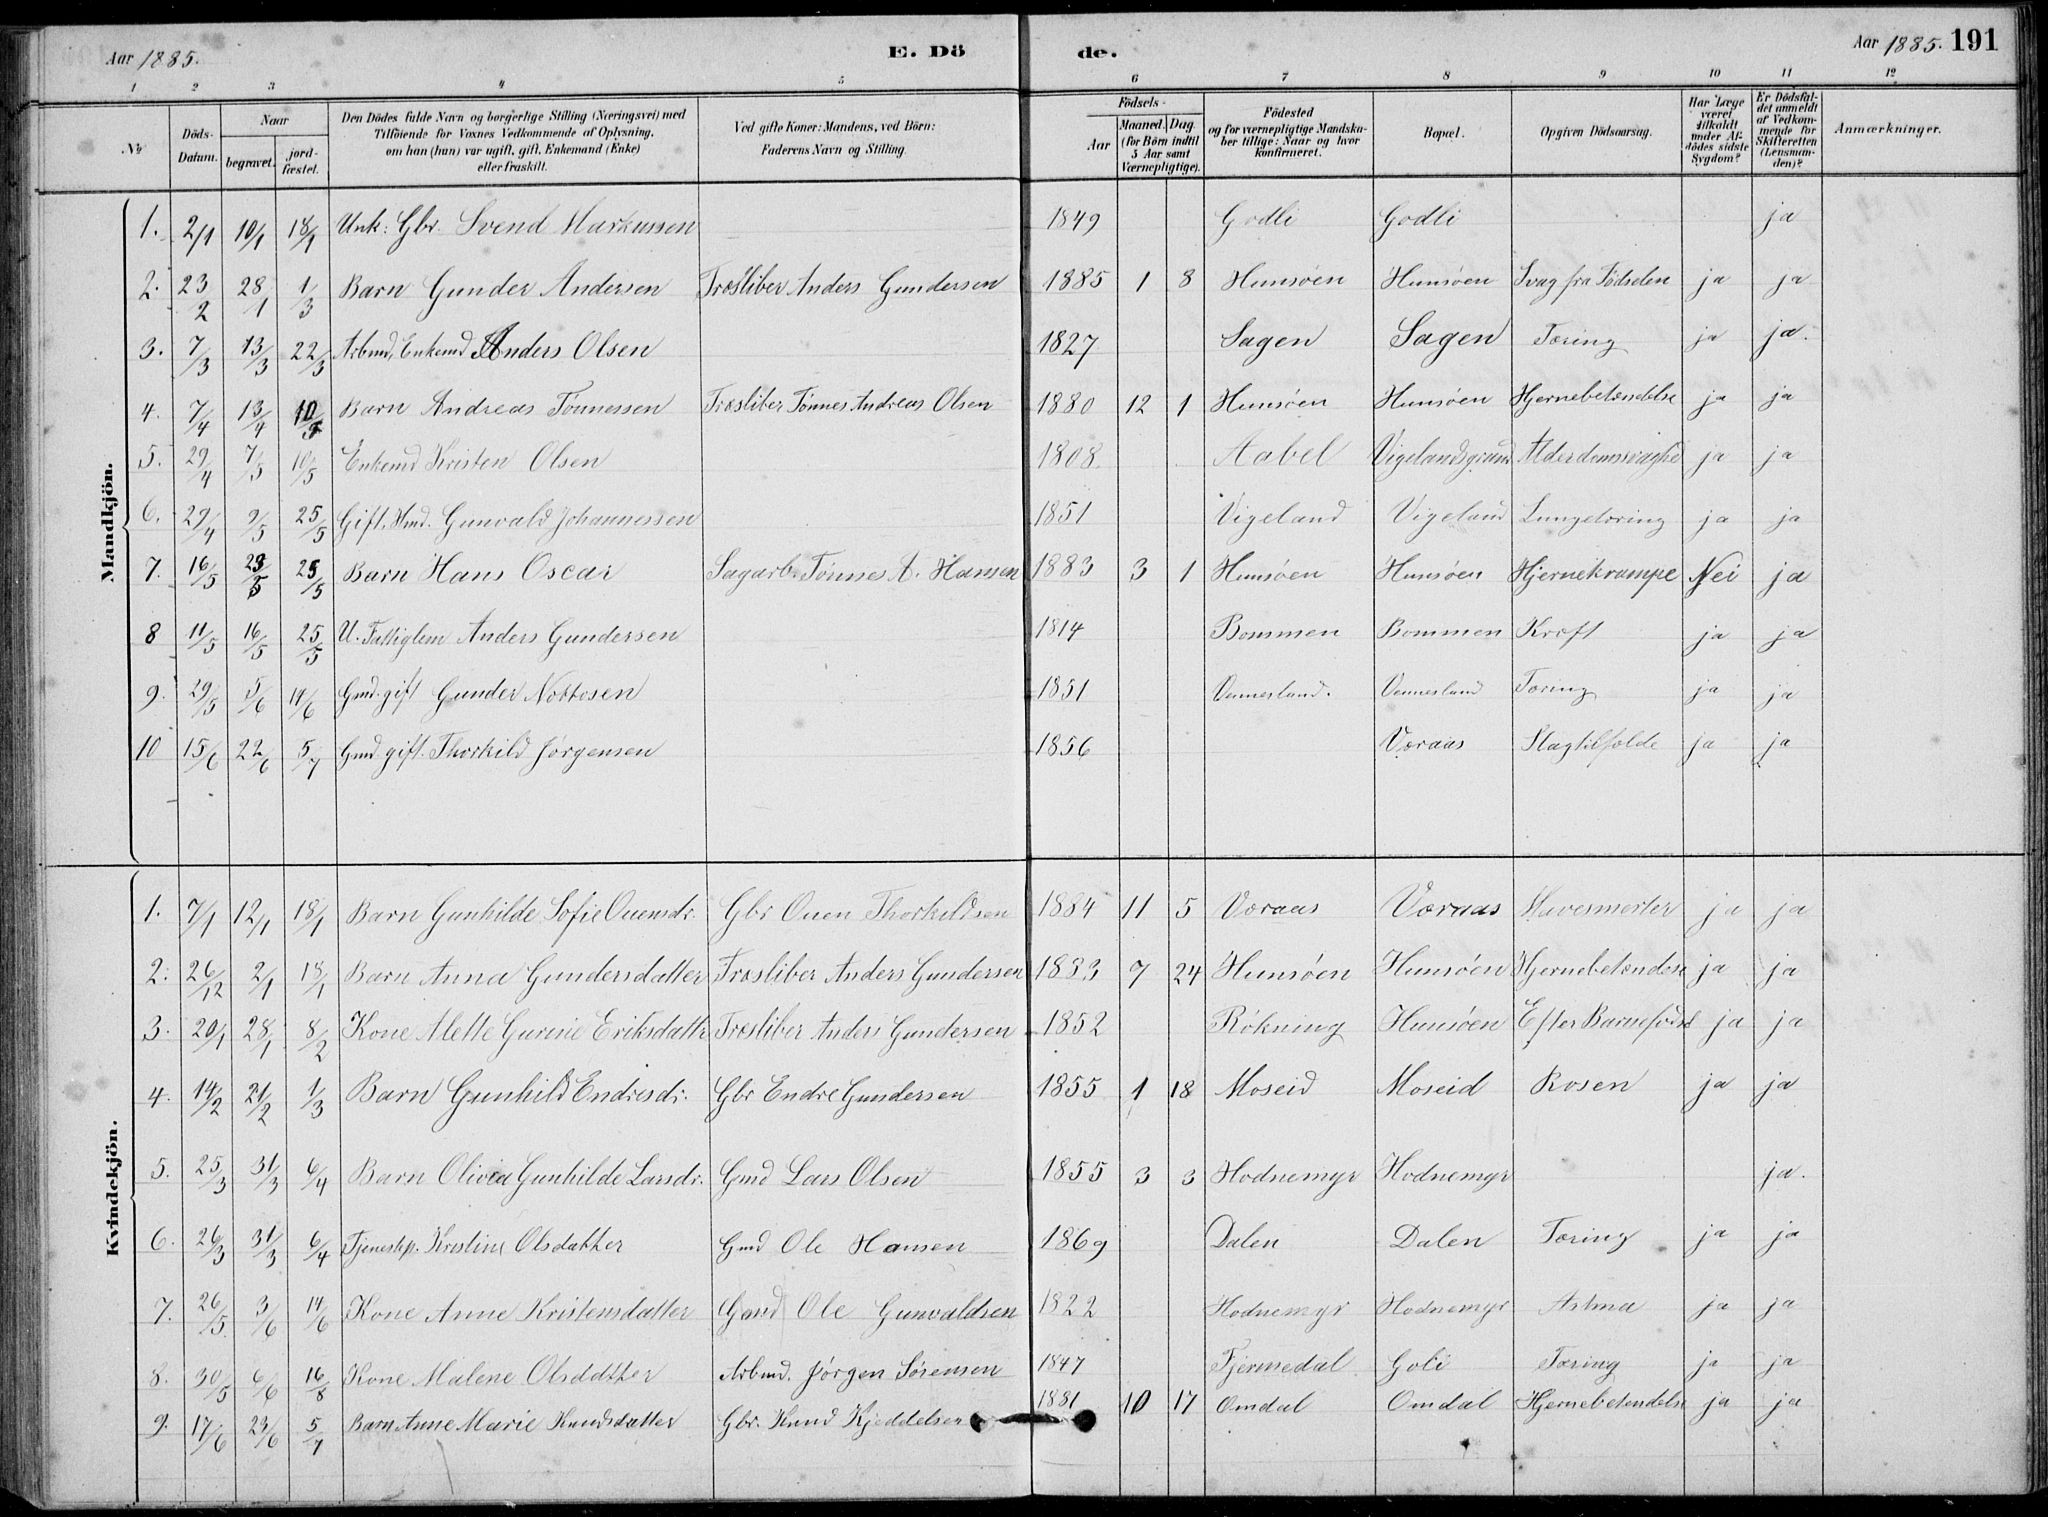 Aar 1885. E. Dö de. Aar 1885. 191
1 2 3 4 5 6 7 8 9 10 11 12
No
Döds-Datum.
Naar
begravet.
jord-fæstet.
Den Dödes fulde Navn og borgerlige Stilling (Næringsvei) med
Tilföiende for Voxnes Vedkommende af Oplysning,
om han (hun) var ugift, gift, Enkemand (Enke)
eller fraskilt.
Ved gifte Koner: Mandens, ved Börn:
Faderens Navn og Stilling.
Födsels-
Aar
Maaned. Dag.
(for Börn indtil
5 Aar samt
Værnepligtige).
Födested
og for værnepligtige Mandska-
ber tillige: Naar og hvor
konfirmeret.
Bopæl.
Opgiven Dödsaarsag.
Har Læge
været
tilkaldt
under Af-
dödes sidste
Sygdom?
Er Dödsfal-
det anmeldt
af Vedkom-
mende for
Skifteretten
(Lensman-
den)?
Anmærkninger.
Mandkjön.
1. 2/1 10/1 18/1 Unk: Gbr. Svend Markussen 1849 Godli Godli ja
2. 23/2 28/1 1/3 Barn Gunder Andersen Træsliber Anders Gundersen 1885 1 8 Hunsøen Hunsøen Svag fra Fødselen ja ja
3. 7/3 13/3 22/3 Arbmd, Enkemd Anders Olsen 1827 Sagen Sagen Tæring ja ja.
4. 7/4 13/4 10/5 Barn Andreas Tønnessen Træsliber Tønnes Andreas Olsen 1880 12 1 Hunsøen Hunsøen Hjernebetændelse ja ja
5. 29/4 7/5 10/5 Enkemd Kristen Olsen 1808 Aabel Vigelandsgrund Alderdomssvaghe ja ja
6. 29/4 9/5 25/5 Gift, Hmd. Gunvald Johannessen 1851 Vigeland Vigeland Lungetæring ja ja
7. 16/5 23/5 25/5 Barn Hans Oscar Sagarb. Tønnes A. Hansen 1883 3 1 Hunsøen Hunsøen Hjernekrampe Nei ja
8 11/5 16/5 25/5 U. Fattiglem Anders Gundersen 1814 Bommen Bommen Kræft ja ja
9. 29/5 5/6 14/6 Gmd. gift Gunder Nottosen 1851 Vennesland. Vennesland Tæring ja ja
10 15/6 22/6 5/7 Gmd gift. Thorkild Jørgensen 1856 Væraas Slagtilfælde ja ja
Kvindekjön.
1. 7/1 12/1 18/1 Barn Gunhilde Sofie Ouensdr. Gbr Ouen Thorkildsen 1884 11 5 Væraas Væraas Mavesmerter ja ja
2. 26/12 2/1 18/1 Barn Anna Gundersdatter Træsliber Anders Gundersen 1883 7 24 Hunsøen Hunsøen Hjernebetændese ja ja
3. 20/1 28/1 8/2 Kone Alette Gurine Eriksdattr Træsliber Anders Gundersen 1852 Røkning Hunsøen Efter Barnefødsl ja ja
4. 14/2 21/2 1/3 Barn Gunhild Endresdr. Gbr Endre Gundersen 1855 1 18 Moseid Moseid Rosen ja ja
5. 25/3 31/3 6/4 Barn Olivia Gunhilde Larsdr. Gmd Lars Olsen 1855 3 3 Hodnemyr Hodnemyr ja.
6. 26/3 31/3 6/4 Tjenestep. Kristine Olsdatter Gmd Ole Hansen 1869 Dalen Dalen Tæring ja ja
7. 26/5. 3/6 14/6 Kone Anne Kristensdatter Gmd Ole Gunvaldsen 1822 Hodnemyr Hodnemyr Astma ja ja
8. 30/5 6/6 16/8 Kone Malene Olsdatter Arbmd. Jørgen Sørensen 1847 Fjermedal Goli Tæring ja ja
9. 17/6 23/6 5/7 Barn Anne Marie Knudsdatter Gbr. Knud Kjeddelsen 1881 10 17 Omdal Omdal Hjernebetændelse ja ja